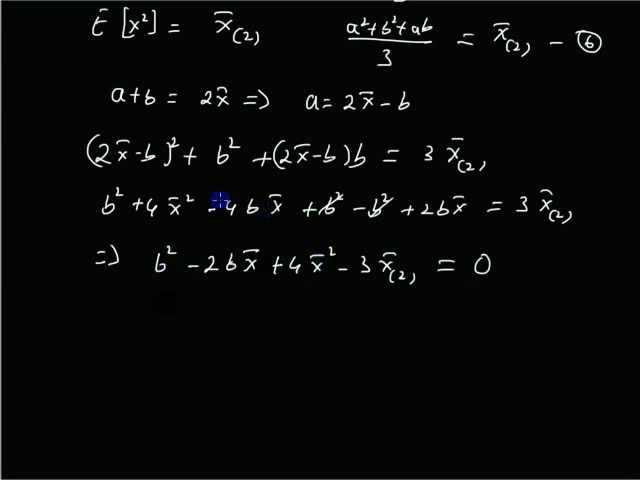 E [x²] = x̄₍₂₎    (a²+b²+ab)/3 = x̄₍₂₎ – ⑥
a+b = 2x̄ => a = 2x̄ – b
(2x̄–b)² + b² + (2x̄–b)b = 3 x̄₍₂₎
b² + 4x̄² – 4bx̄ + b² – b² + 2bx̄ = 3 x̄₍₂₎
=> b² – 2bx̄ + 4x̄² – 3x̄₍₂₎ = 0